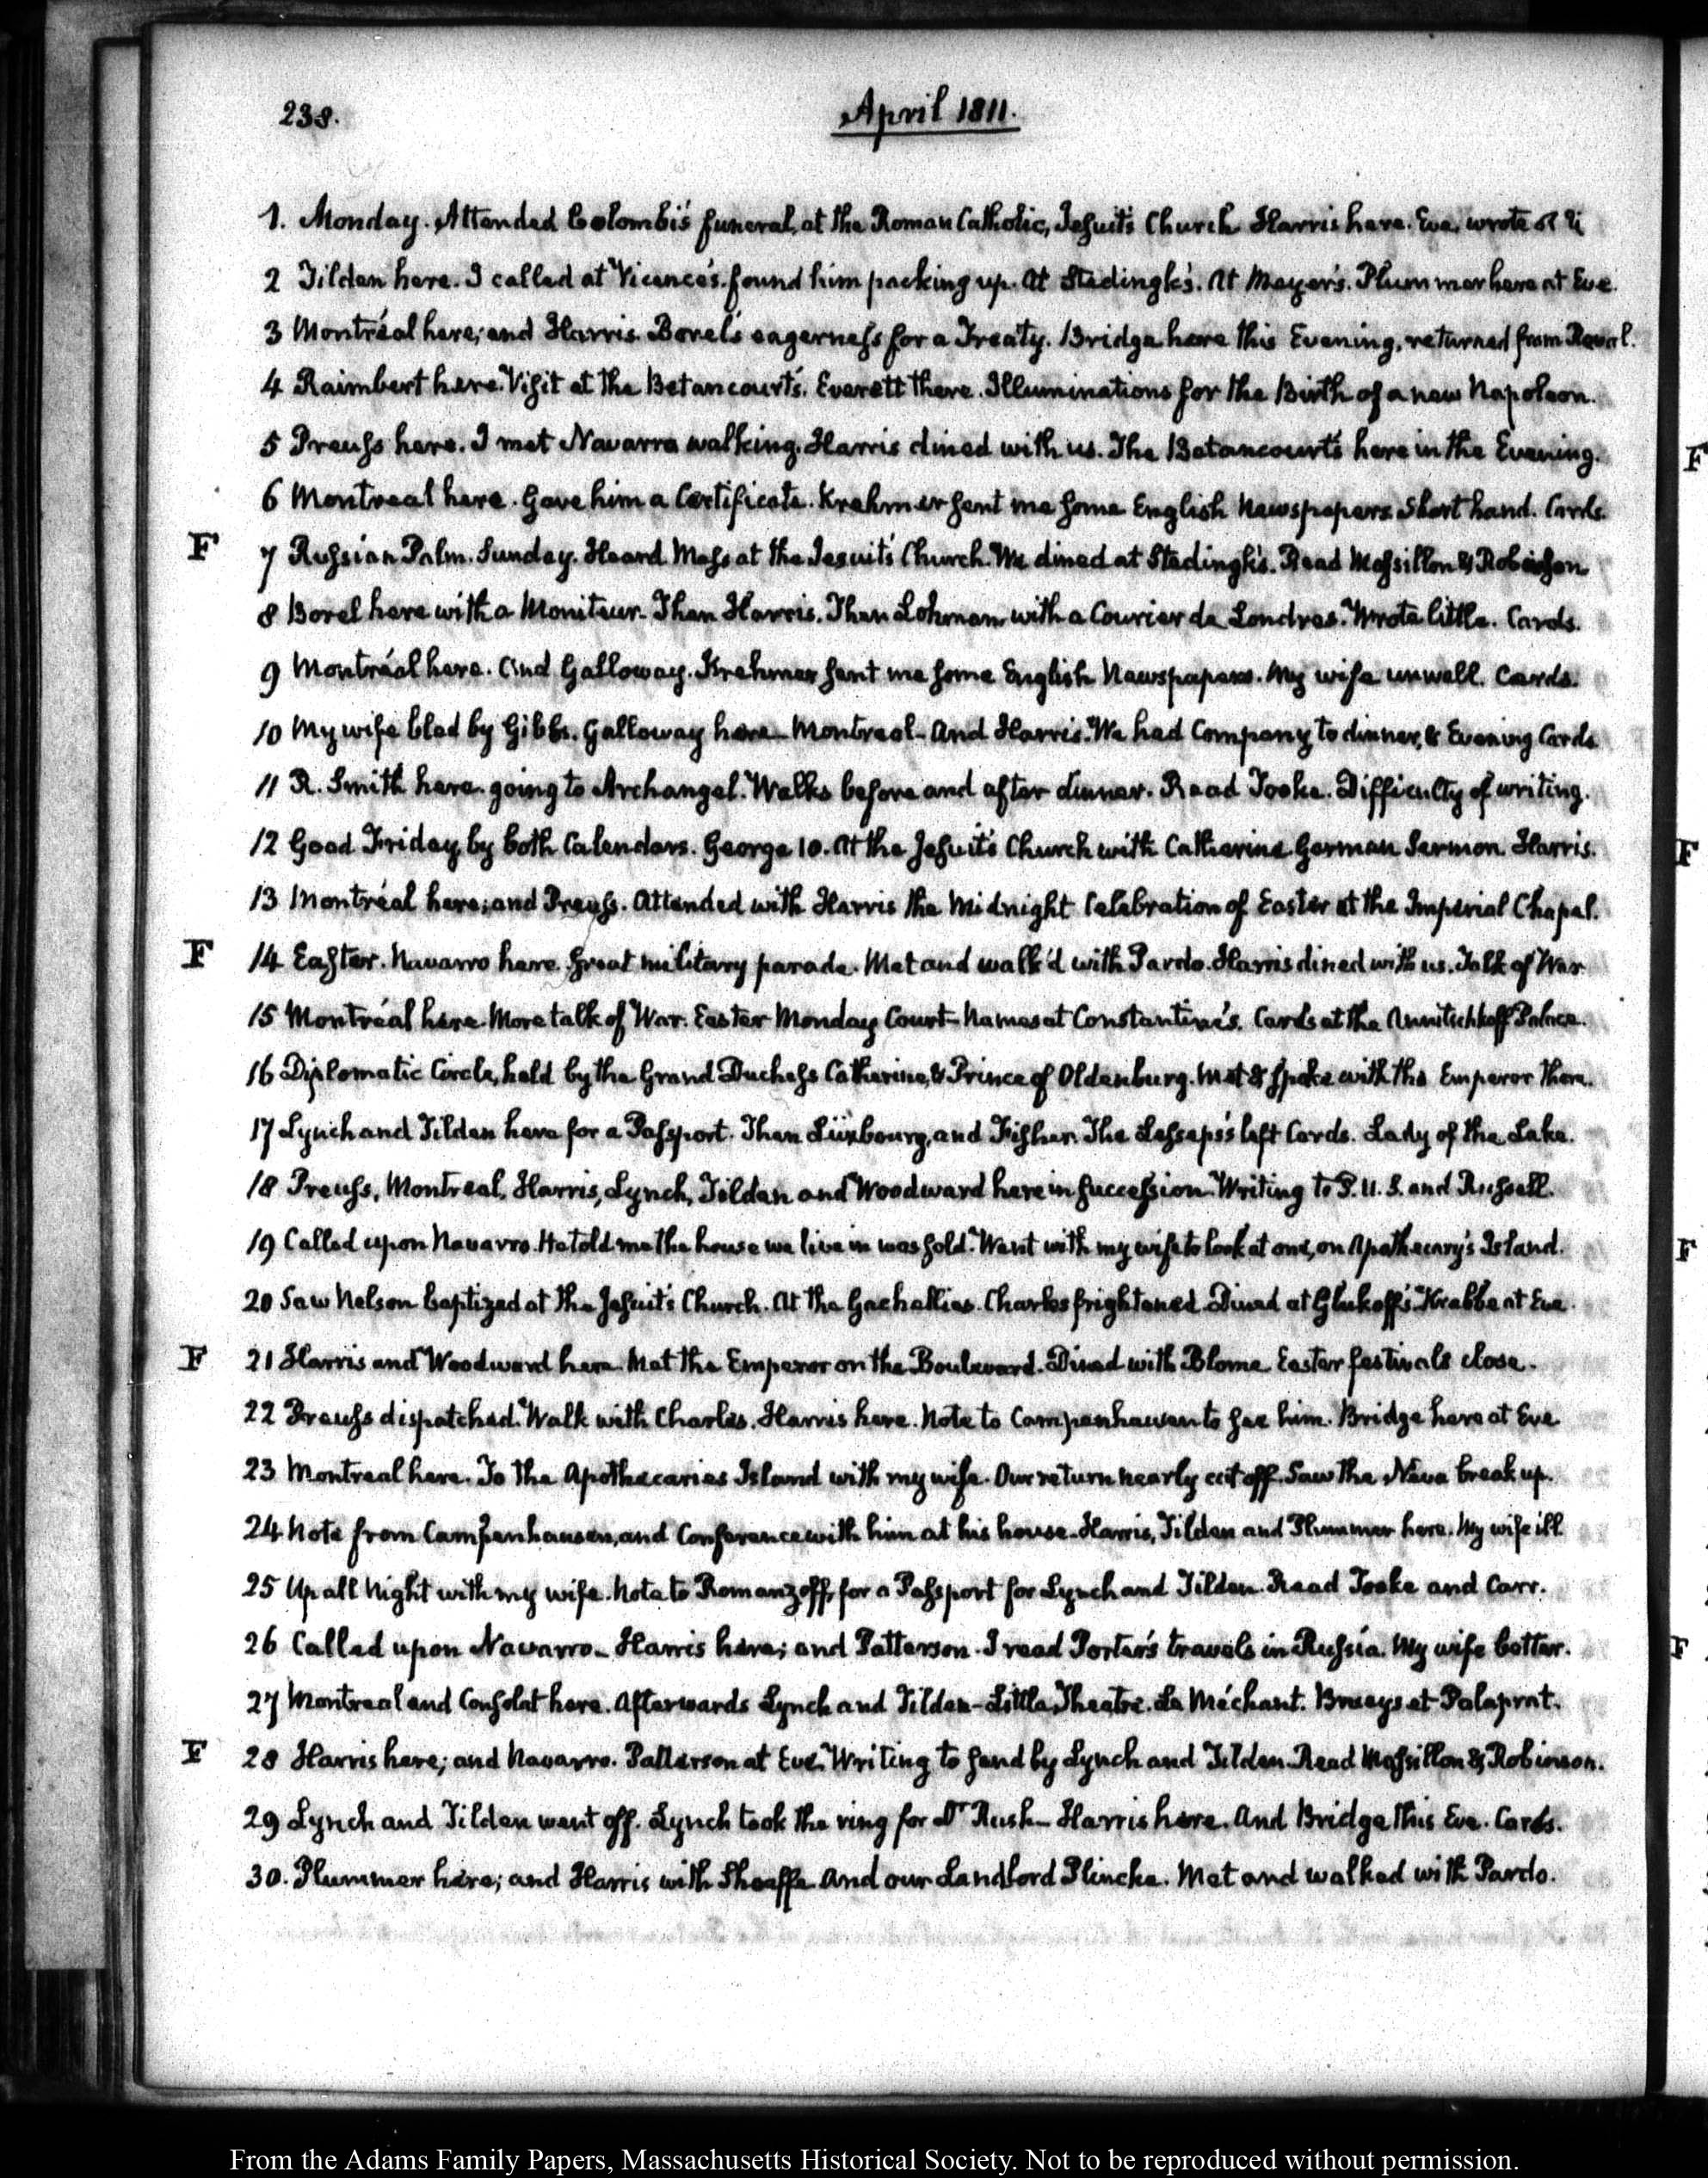 238.
April 1811.
1. Monday. Attended Colombi's funeral, at the Roman Catholic, Jesuit's Church. Harris here. Eve, wrote
2 Tilden here. I called at Vicence's. found him packing up. At Stedingk's. At Meyer's. Plummer here at Eve.
3 Montréal here; and Harris. Borel's eagerness for a Treaty. Bridge here this Evening, returned from Reval.
4 Raimbert here. Visit at the Betancourt's. Everett there. Illuminations for the Birth of a new Napoleon.
5 Preuss here. I met Navarro walking. Harris dined with us. The Betancourt's here in the Evening.
6 Montreal here. Gave him a Certificate. Krehmer sent me some English Newspapers. Short hand. Cards.
F 7 Russian Palm. Sunday. Heard Mass at the Jesuits Church. We dined at Stedingk's. Read Massillon & Robinson
8 Borel here with a Moniteur. Then Harris. Then Lohman with a Courier de Londres. Wrote little. Cards.
9 Montréal here. And Galloway. Krehmer sent me some English Newspapers. My wife unwell. Cards.
10 My wife bled by Gibbs. Galloway here. Montreal. And Harris. We had Company to dinner, & Evening Cards
11 R. Smith here. going to Archangel. Walks before and after dinner. Read Tooke. Difficulty of writing.
12 Good Friday by both Calendars. George 10. At the Jesuit's Church with Catherine German Sermon. Harris.
13 Montréal here; and Preuss. Attended with Harris the Midnight Celebration of Easter at the Imperial Chapel.
F 14 Easter. Navarro here. Great military parade. Met and walk'd with Pardo. Harris dined with us. Talk of War.
15 Montréal here. More talk of War. Easter Monday Court. Names at Constantine's. Cards at the Annitschkoff Palace.
16 Diplomatic Circle, held by the Grand Duchess Catherine, & Prince of Oldenburg. Met & spoke with the Emperor there.
17 Lynch and Tilden here for a Passport. Then Lüxbourg, and Fisher. The Lesseps's left Cards. Lady of the Lake.
18 Preuss, Montreal, Harris, Lynch, Tilden and Woodward here in succession. Writing to S. U. S. and Russell.
19 Called upon Navarro. He told me the house we live in was sold. Went with my wife to look at one, on Apothecary's Island.
20 Saw Nelson baptized at the Jesuit's Church. At the Gachallies. Charles frightened. Dined at Glukoff's. Krabbe at Eve.
F 21 Harris and Woodward here. Met the Emperor on the Boulevard. Dined with Blome. Easter festivals close.
22 Preuss dispatched. Walk with Charles. Harris here. Note to Campenhausen to see him. Bridge here at Eve
23 Montreal here. To the Apothecaries Island with my wife. Our return nearly cut off. Saw the Neva break up.
24 Note from Campenhausen, and Conference with him at his house. Harris, Tilden and Plummer here. My wife ill.
25 Up all Night with my wife. Note to Romanzoff, for a Passport for Lynch and Tilden. Read Tooke and Carr.
26 Called upon Navarro. Harris here; and Patterson. I read Porter's travels in Russia. My wife better.
27 Montreal and Consolat here. Afterwards Lynch and Tilden- Little Theatre. Le Méchant. Brueys et Palaprat.
F 28 Harris here; and Navarro. Patterson at Eve. Writing to send by Lynch and Tilden. Read Massillon & Robinson.
29 Lynch and Tilden went off. Lynch took the ring for Dr Rush- Harris here. And Bridge this Eve. Cards.
30. Plummer here; and Harris with Sheaffe. And our Landlord Plincke. Met and walked with Pardo.
F
F
F
F
From the Adams Family Papers, Massachusetts Historical Society. Not to be reproduced without permission.